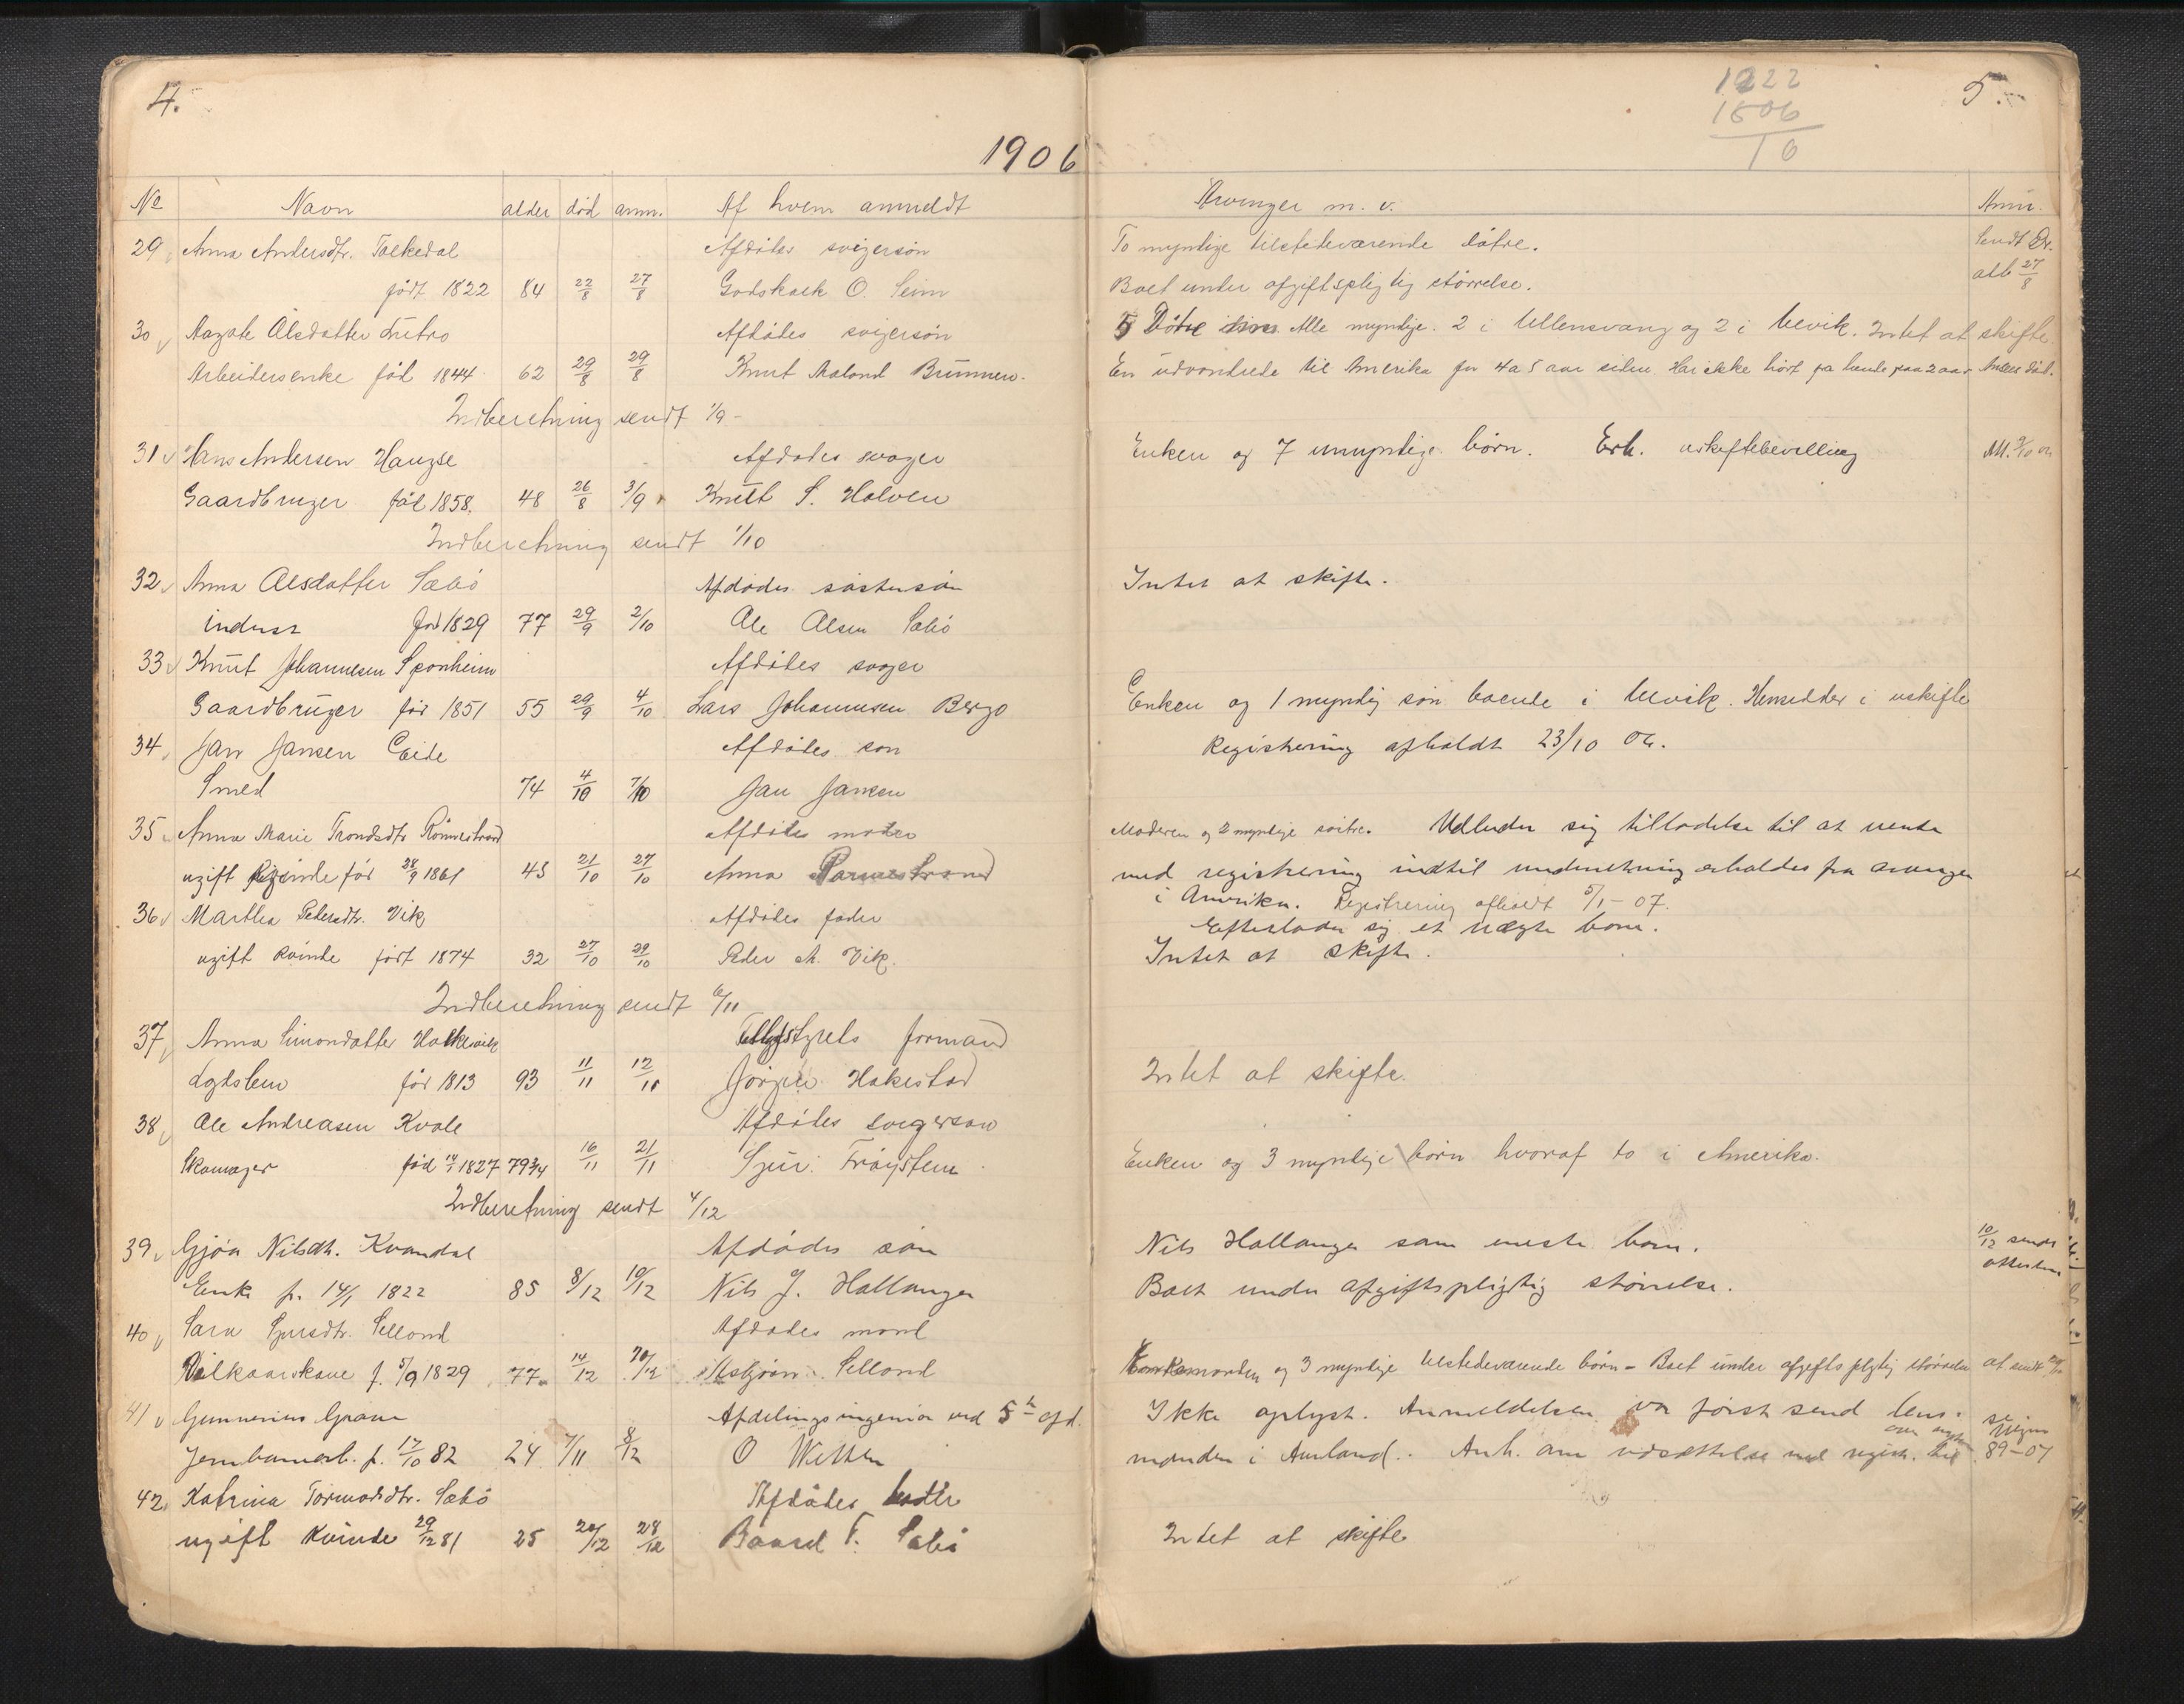 4.
1906
1822
1806
10
5.
No Navn alder död anm. Af hvem anmeldt Arvinger m. v. Anm.
29 Anna Andersdtr. Afdödes svigersön To myndige tilstedeværende dötre. Sendt
födt 1822 84 22/8 27/8 Godskalk O. Seim Boet under afgiftspligtig störrelse. 27/8
30 Aagate Olsdatter Lutro Afdödes svigersön 5 Dötre Alle myndige. 2 i Ullensvang og 2 i Ulvik. Intet at skifte
Arbeidersenke född 1844 62 29/8 29/8 Knut En udvandrede til Amerika for 4 a 5 aar siden Har ikke hört fra hende paa 2 aar
Indberetning sendt 1/9
31 Hans Andersen Haugse Afdödes svoger Enken og 7 umyndige börn. Erh. uskiftebevilling
Gaardbruger född 1858. 48 26/8 3/9 Knut S. Holven
Indberetning sendt 1/10
32 Anna Olsdatter Sæbö Afdödes söstersön Intet at skifte.
inderst född 1829 77 29/9 2/10 Ole Olsen Sæbö
33 Knut Johannesen Sponheim Afdödes svoger
Gaardbruger född 1851 55 29/9 4/10 Lars Johannesen Berge Enken og 1 myndig sön boende i Ulvik. Hensidder i uskifte
34 Jan Jansen Eide Afdödes sön Registrering afholdt 23/10 06.
Smed 74 4/10 7/10 Jan Jansen
35 Anna Marie Trondsdtr Afdödes moder Moderen og 2 myndige söstre. Udbeder sig tilladelse til at vente
ugift Kvinde född 28/9 1861 45 21/10 27/10 Anna med registrering indtil underretning erholdes fra arvinger
i Amerika. Registrering afholdt 5/1-07.
36 Martha Pedersdtr. Vik Afdödes fader Efterlader sig et uægte barn.
ugift kvinde född 1874 32 27/10 29/10 Peder A. Vik. Intet at skifte.
Indberetning sendt 6/11
37 Anna Simondatter formand
Lægdslem född 1813 93 11/11 12/11 Jörgen Hakestad Intet at skifte.
38 Ole Andreasen Kvale Afdödes svigersön
Skomager född 1827 79 3/4 16/11 21/11 Sjur Tröystein Enken og 3 myndige börn hvoraf to i Amerika.
Indberetning sendt 4/12
39 Gjöa Nilsdtr. Kvandal Afdödes sön Nils Hallanger som eneste barn. 10/12 sendt
Enke f. 14/1 1822 85 8/12 10/12 Nils J. Hallanger Boet under afgiftspligtig störrelse. attesten
40 Sara Sjursdtr. Selland Afdödes mand
Vilkaarskone f. 5/9 1829 77 14/12 Asbjörn Selland Enkemanden og 3 myndige tilstedeværende börn - Boet under afgiftspligtig störrelse
41 Gunnerius Afdelingsingeniör ved 5te afd. Ikke oplyst. Anmeldelsen var först send lens-
Jernbanearb. f. 17/10 82 24 7/11 8/12 O manden i Aurland. Anh. om udsættelse med registr. til 89-07
42 Katrina Tormodsdtr. Sæbö Afdödes
ugift Kvinde 29/12 81 25 20/12 28/12 Baard T. Sæbö Intet at skifte